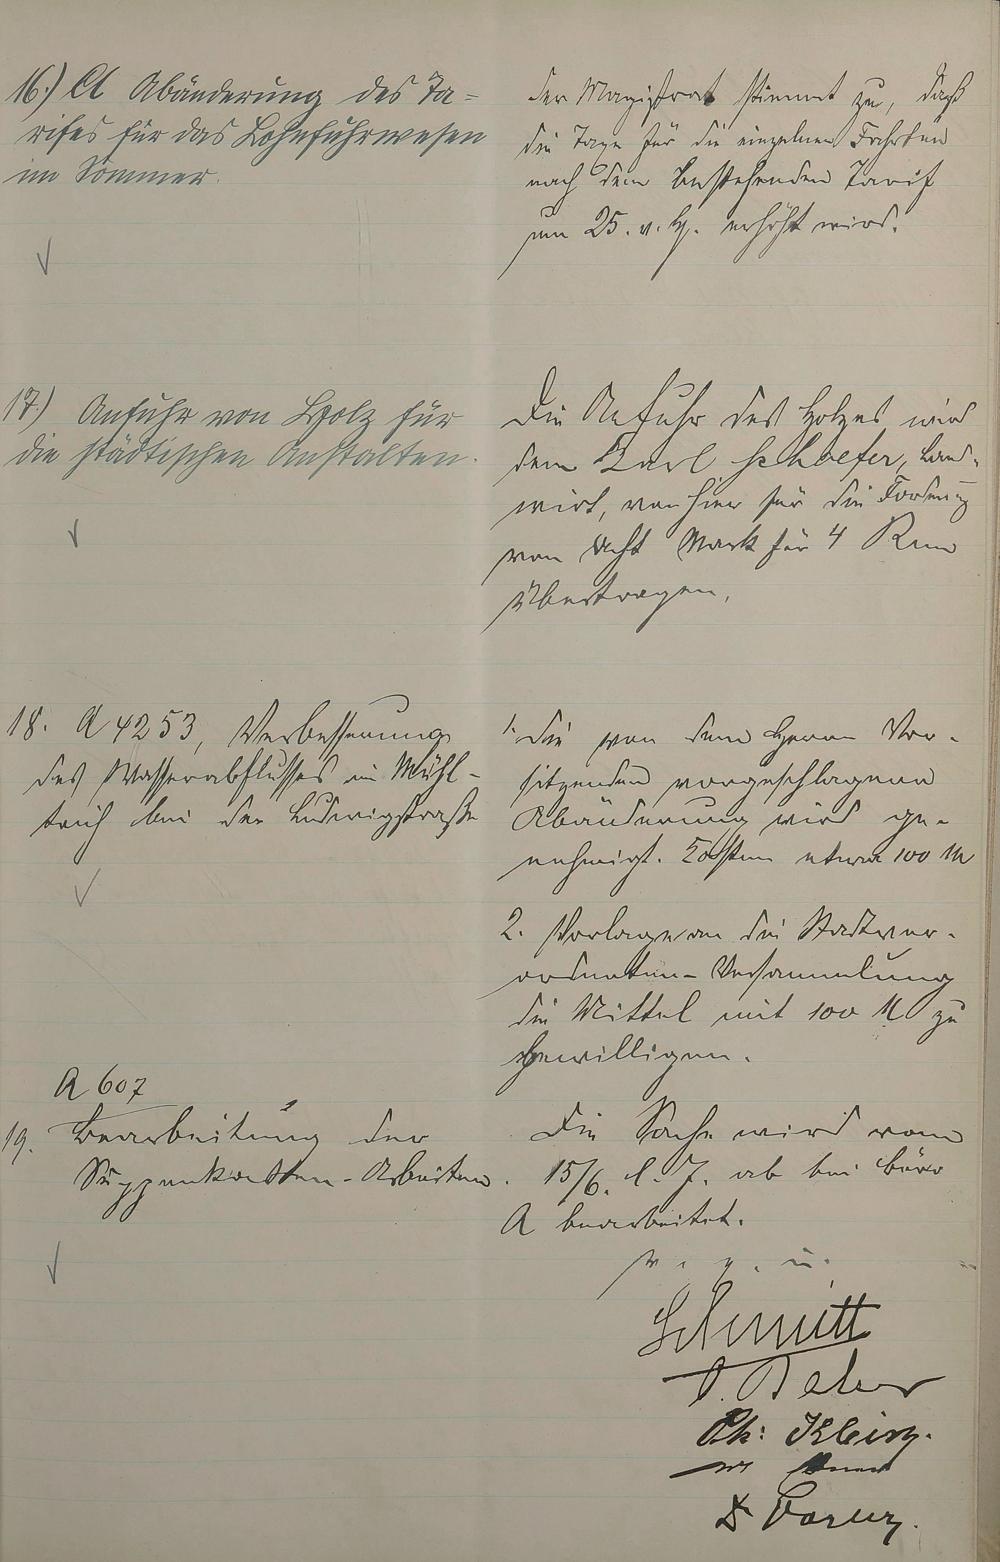 16.) A Abänderung des Ta=
rifes für das Lohnfuhrwesen
im Sommer.
Der Magistrat stimmt zu, daß
die Taxe für die einzelnen Fahrten
nach dem bestehenden Tarif
um 25. v. H. erhöht wird.
17.) Anfuhr von Holz für
die städtischen Anstalten.
Die Anfuhr des Holzes wird
dem Karl Schaefer, Land-
wirt, von hier für die Forderung
von acht Mark für 4 Rm
übertragen.
18. A 4253, Verbesserung
des Wasserabflusses im Mühl-
teich bei der Ludwigstraße
1. Die von dem Herrn Vor-
sitzenden vorgeschlagene
Abänderung wird ge-
nehmigt. Kosten etwa 100 M
2. Vorlage an die Stadtver-
ordneten-Versammlung
die Mittel mit 100 M zu
bewilligen.
A 607
19. Bearbeitung der
Suppenkosten-Arbeiten.
Die Sache wird vom
15/6. l. J. ab bei Büro
A bearbeitet.
v. g. u.
Schmitt